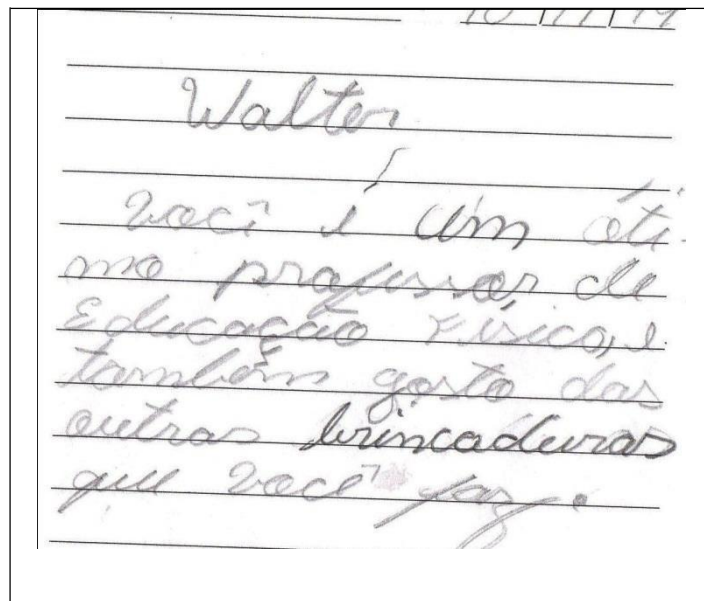 Walter
você é um óti
mo professor de
Educação Física, e
também gosto das
outras brincadeiras
que você faz.